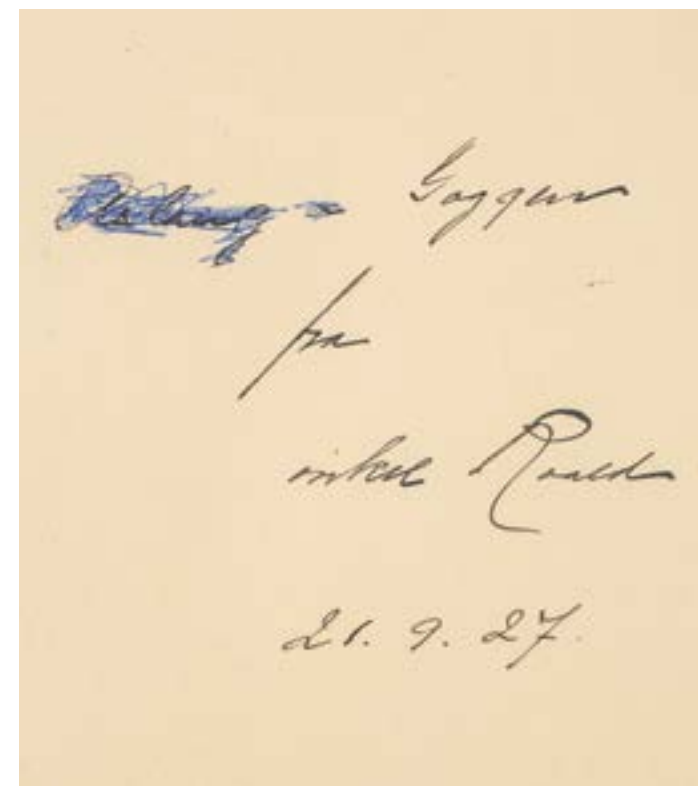 Goggen
fra
onkel Roald
21. 9. 27.